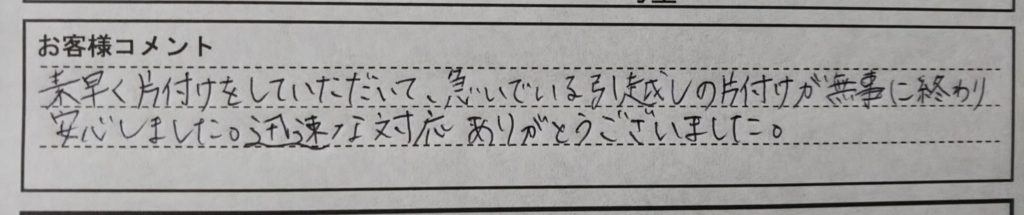 お客様コメント
素早く片付けをしていただいて、急いでいる引越しの片付けが無事に終わり
安心しました。迅速な対応ありがとうございました。